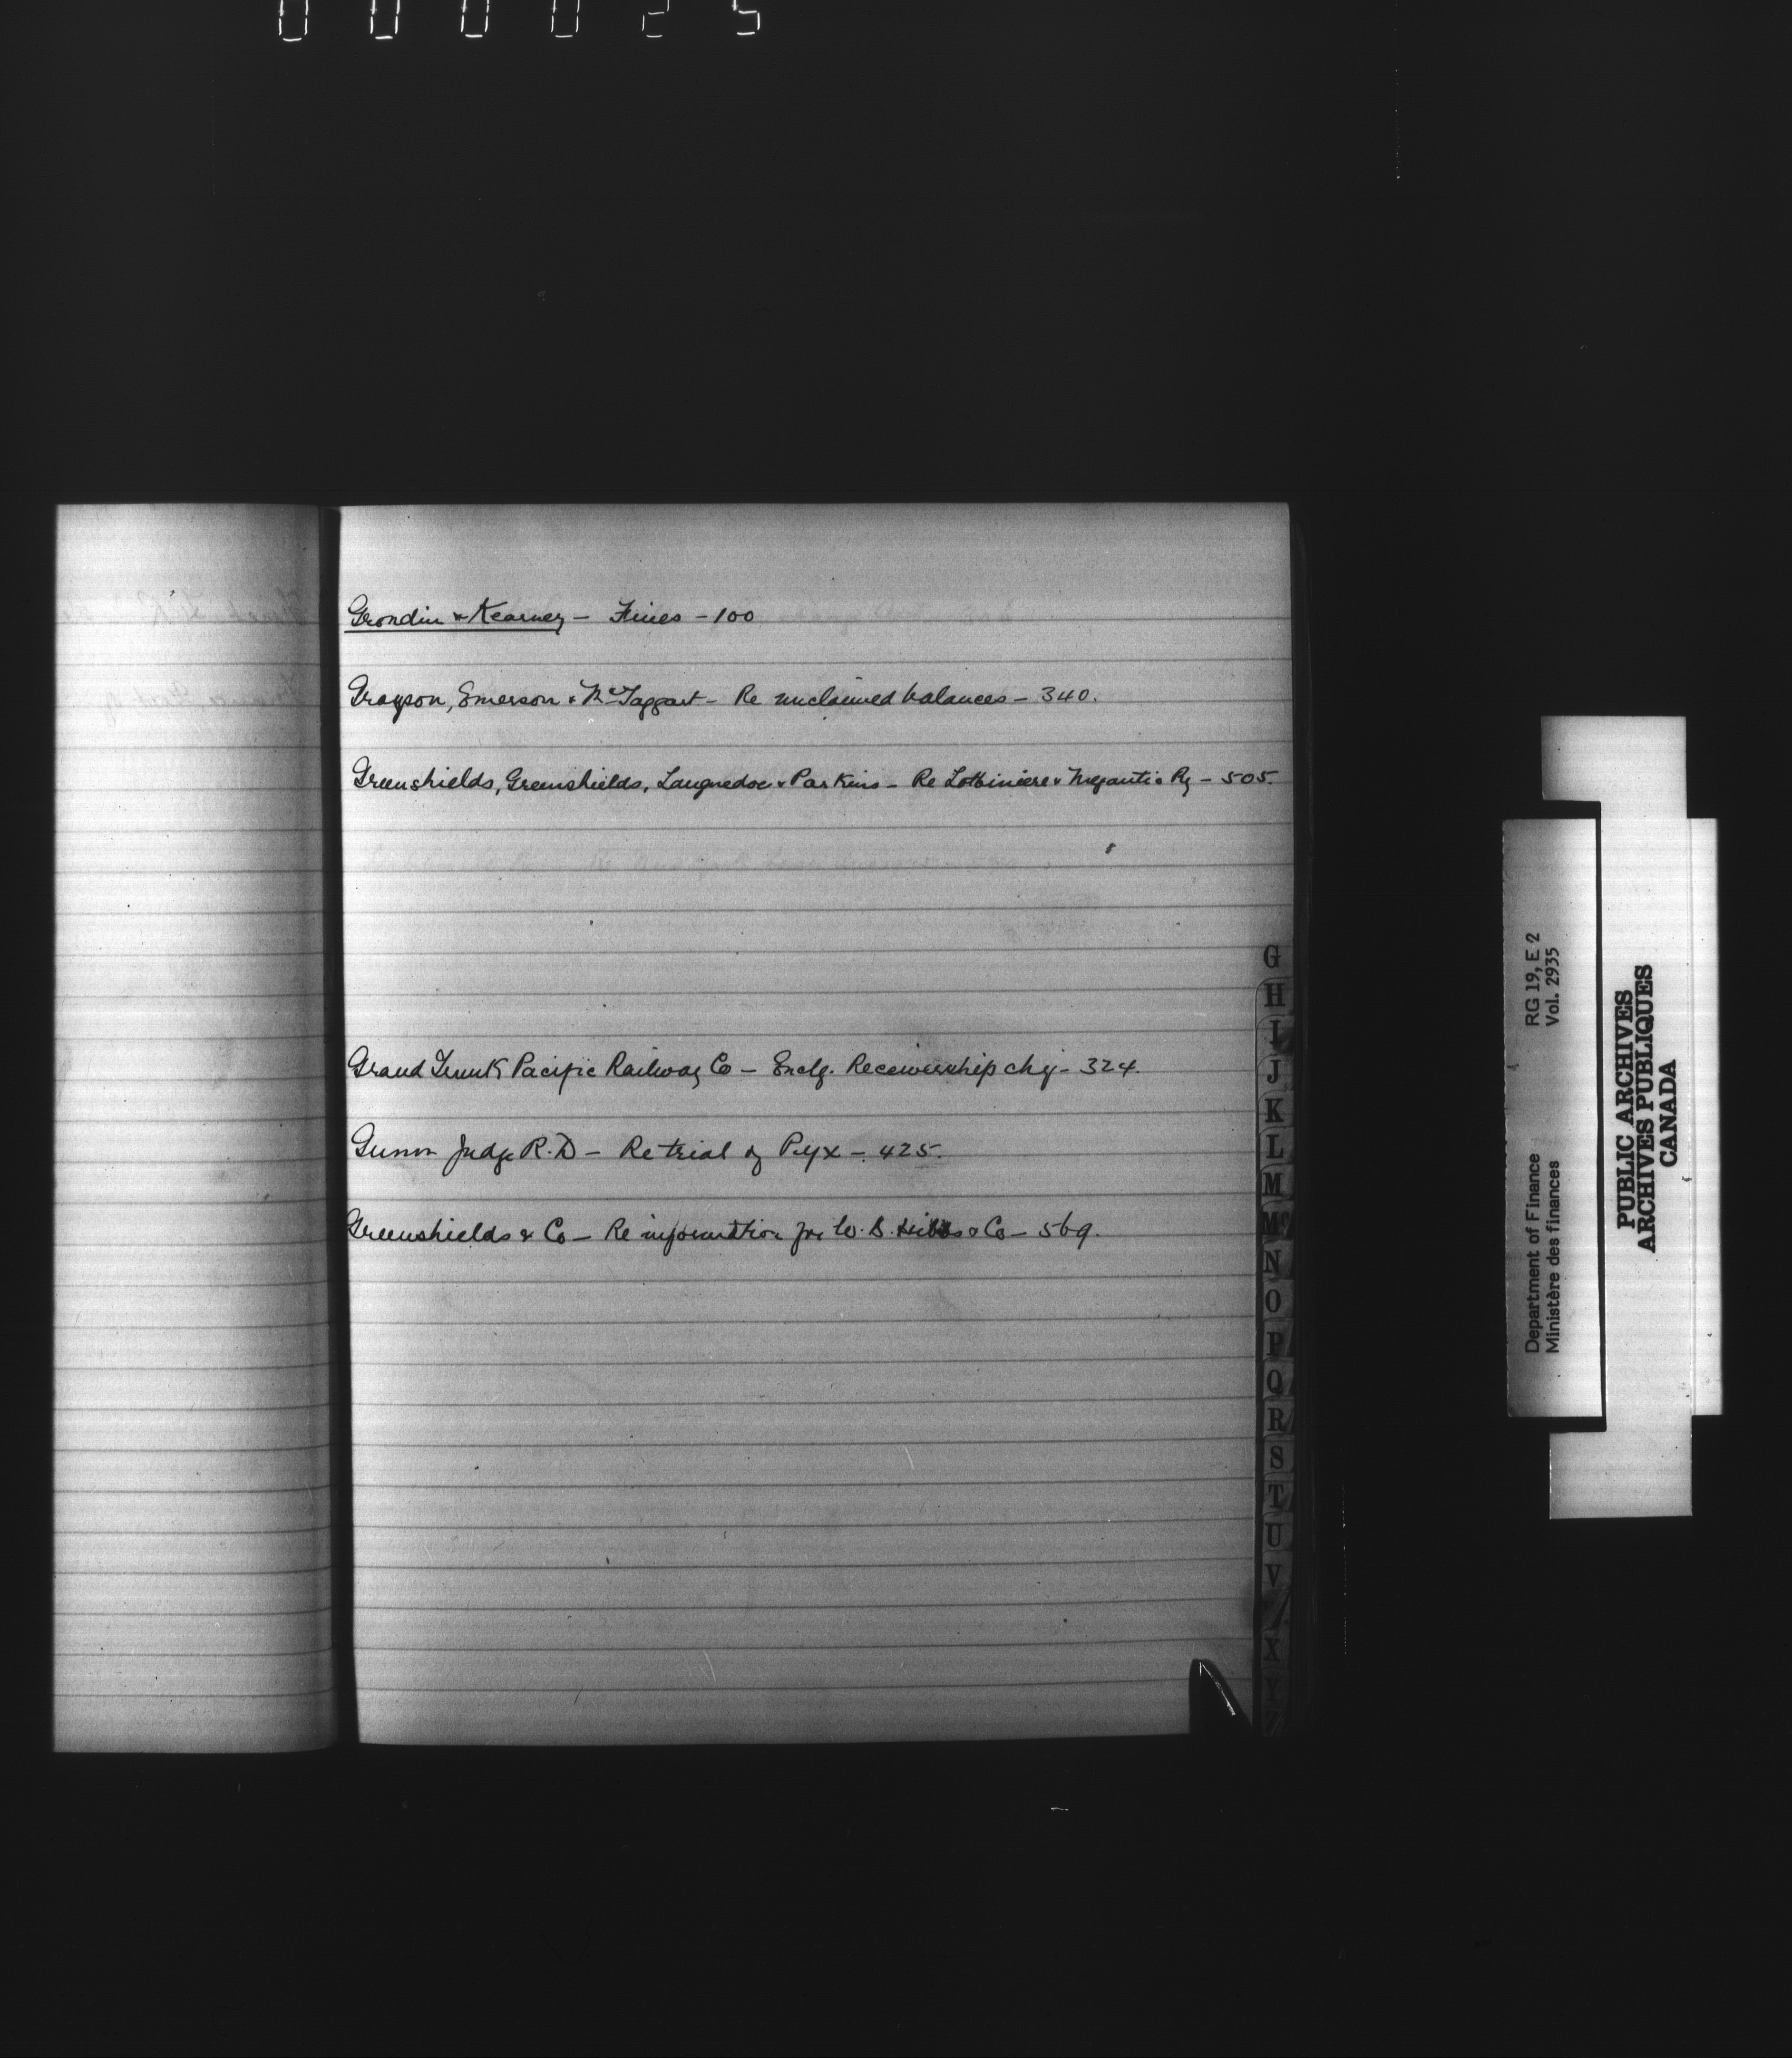 000025
Grondin & Kearney - Fines - 100
Grayson, Emerson & McTaggart - Re unclaimed balances - 340.
Greenshields, Greenshields, Languedoc & Parkins - Re Lotbiniere & Megantic Ry - 505.
Grand Trunk Pacific Railway Co - Enclg. Receivership chq - 324.
Gunn Judge R.D - Re trial of Pyx - 425.
Greenshields & Co - Re information for W. B. Hibbs & Co - 569.
G
H
I
J
K
L
M
Mc
N
O
P
Q
R
S
T
U
V
X
Y
Department of Finance RG 19, E 2
Ministère des finances Vol. 2935
PUBLIC ARCHIVES
ARCHIVES PUBLIQUES
CANADA